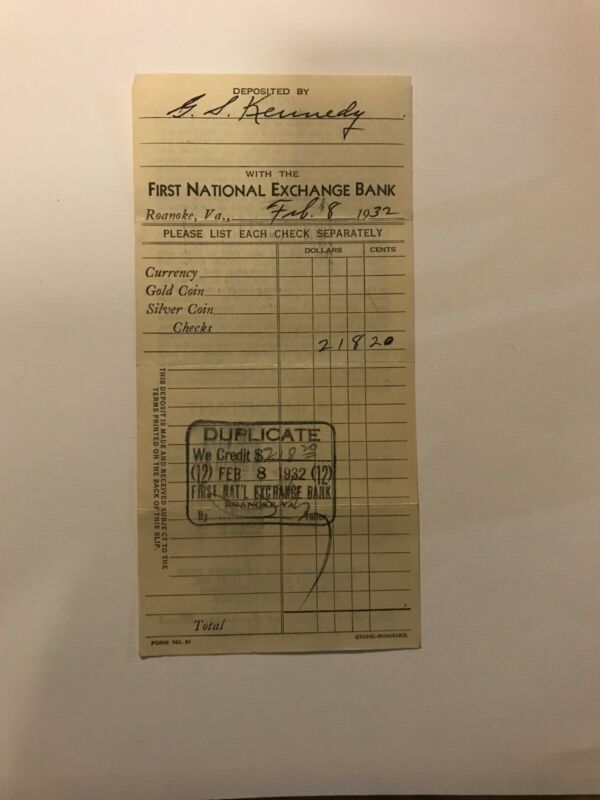 DEPOSITED BY
G. S. Kennedy
WITH THE
FIRST NATIONAL EXCHANGE BANK
Roanoke, Va., Feb. 8 1932
PLEASE LIST EACH CHECK SEPARATELY
DOLLARS CENTS
Currency
Gold Coin
Silver Coin
Checks
218 20
THIS DEPOSIT IS MADE AND RECEIVED SUBJECT TO THE
TERMS PRINTED ON THE BACK OF THIS SLIP.
DUPLICATE
We Credit $ 218 20
(12) FEB 8 1932 (12)
FIRST NAT'L EXCHANGE BANK
ROANOKE, VA.
By Teller
Total
FORM NO. 81 STONE-ROANOKE